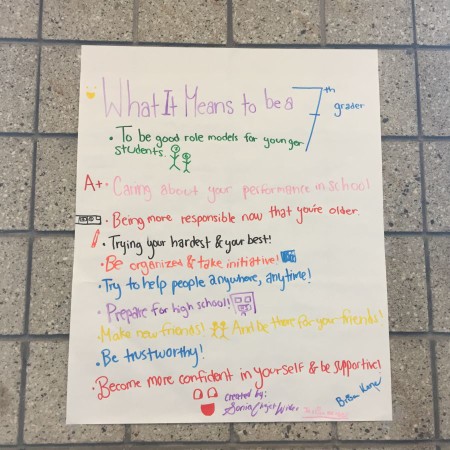 What It Means to be a 7th grader
• To be good role models for younger
students.
A+ • Caring about your performance in school
• Being more responsible now that you're older.
• Trying your hardest & your best!
• Be organized & take initiative!
• Try to help people anywhere, anytime!
• Prepare for high school!
• Make new friends! And be there for your friends!
• Be trustworthy!
• Become more confident in yourself & be supportive!
created by:
Sonia